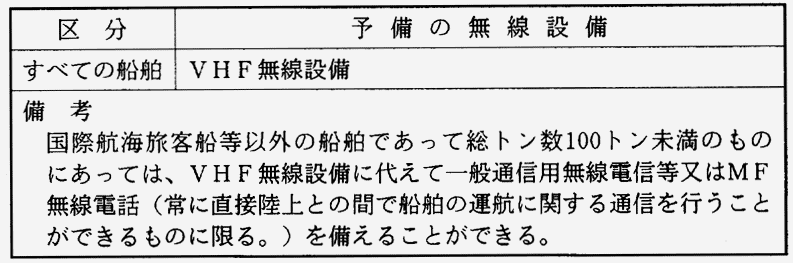 区分 予備の無線設備
すべての船舶 VHF無線設備
備考
国際航海旅客船等以外の船舶であって総トン数100トン未満のもの
にあっては、VHF無線設備に代えて一般通信用無線電信等又はMF
無線電話（常に直接陸上との間で船舶の運航に関する通信を行うこと
ができるものに限る。）を備えることができる。